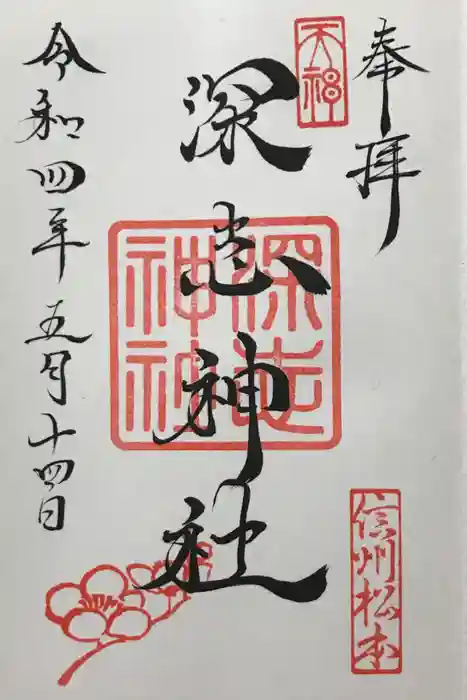 奉拝
天神
深志神社
深志
神社
令和四年五月十四日
信州松本